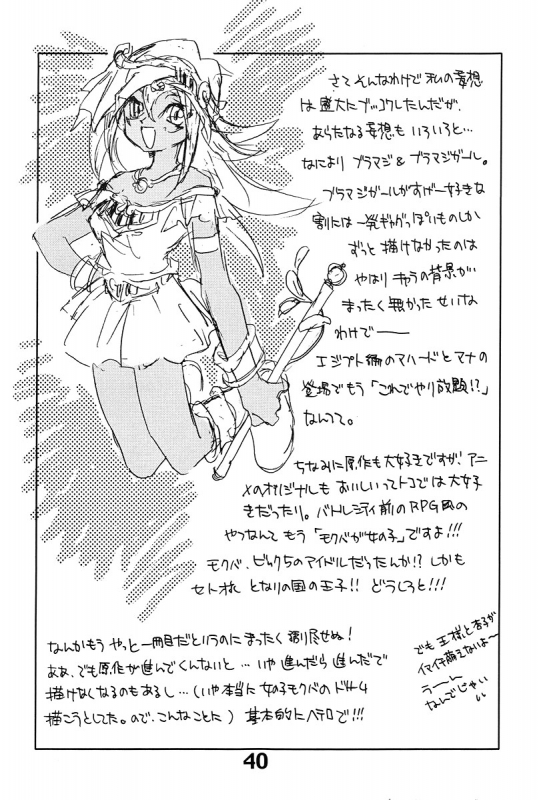 さてそんなわけで私の妄想
は盛大にブッコワしたんだが、
あらたなる妄想もいろいろと…
なにより ブラマジ & ブラマジガール。
ブラマジガールがすげー好きな
割には一発ギャグっぽいものしか
ずっと描けなかったのは
やはり キャラの背景が
まったく無かった せいな
わけで――
エジプト編のマハードとマナの
登場でもう「これでやり放題!?」
なんつて。
ちなみに原作も大好きですが、アニ
メのオリジナルも おいしいってトコでは大好
きだったり。バトルシティ前のRPG風の
やつなんて もう「モクバが女の子」ですよ!!!
モクバ、ビック5のアイドルだったんか!? しかも
セト様 となりの国の王子!! どうしろと!!!
なんかもう やっと一冊目だというのに まったく 語り尽せぬ!
ああ、でも原作が進んでくんないと … いや 進んだら 進んだで
描けなくなるのもあるし … (いや本当に 女の子モクバの
描こうとしてた。ので、こんなことに) 基本的にヘテロで!!!
でも 王様と杏子が
イマイチ萌えないよ〜
う〜ん
なんでじゃい
40